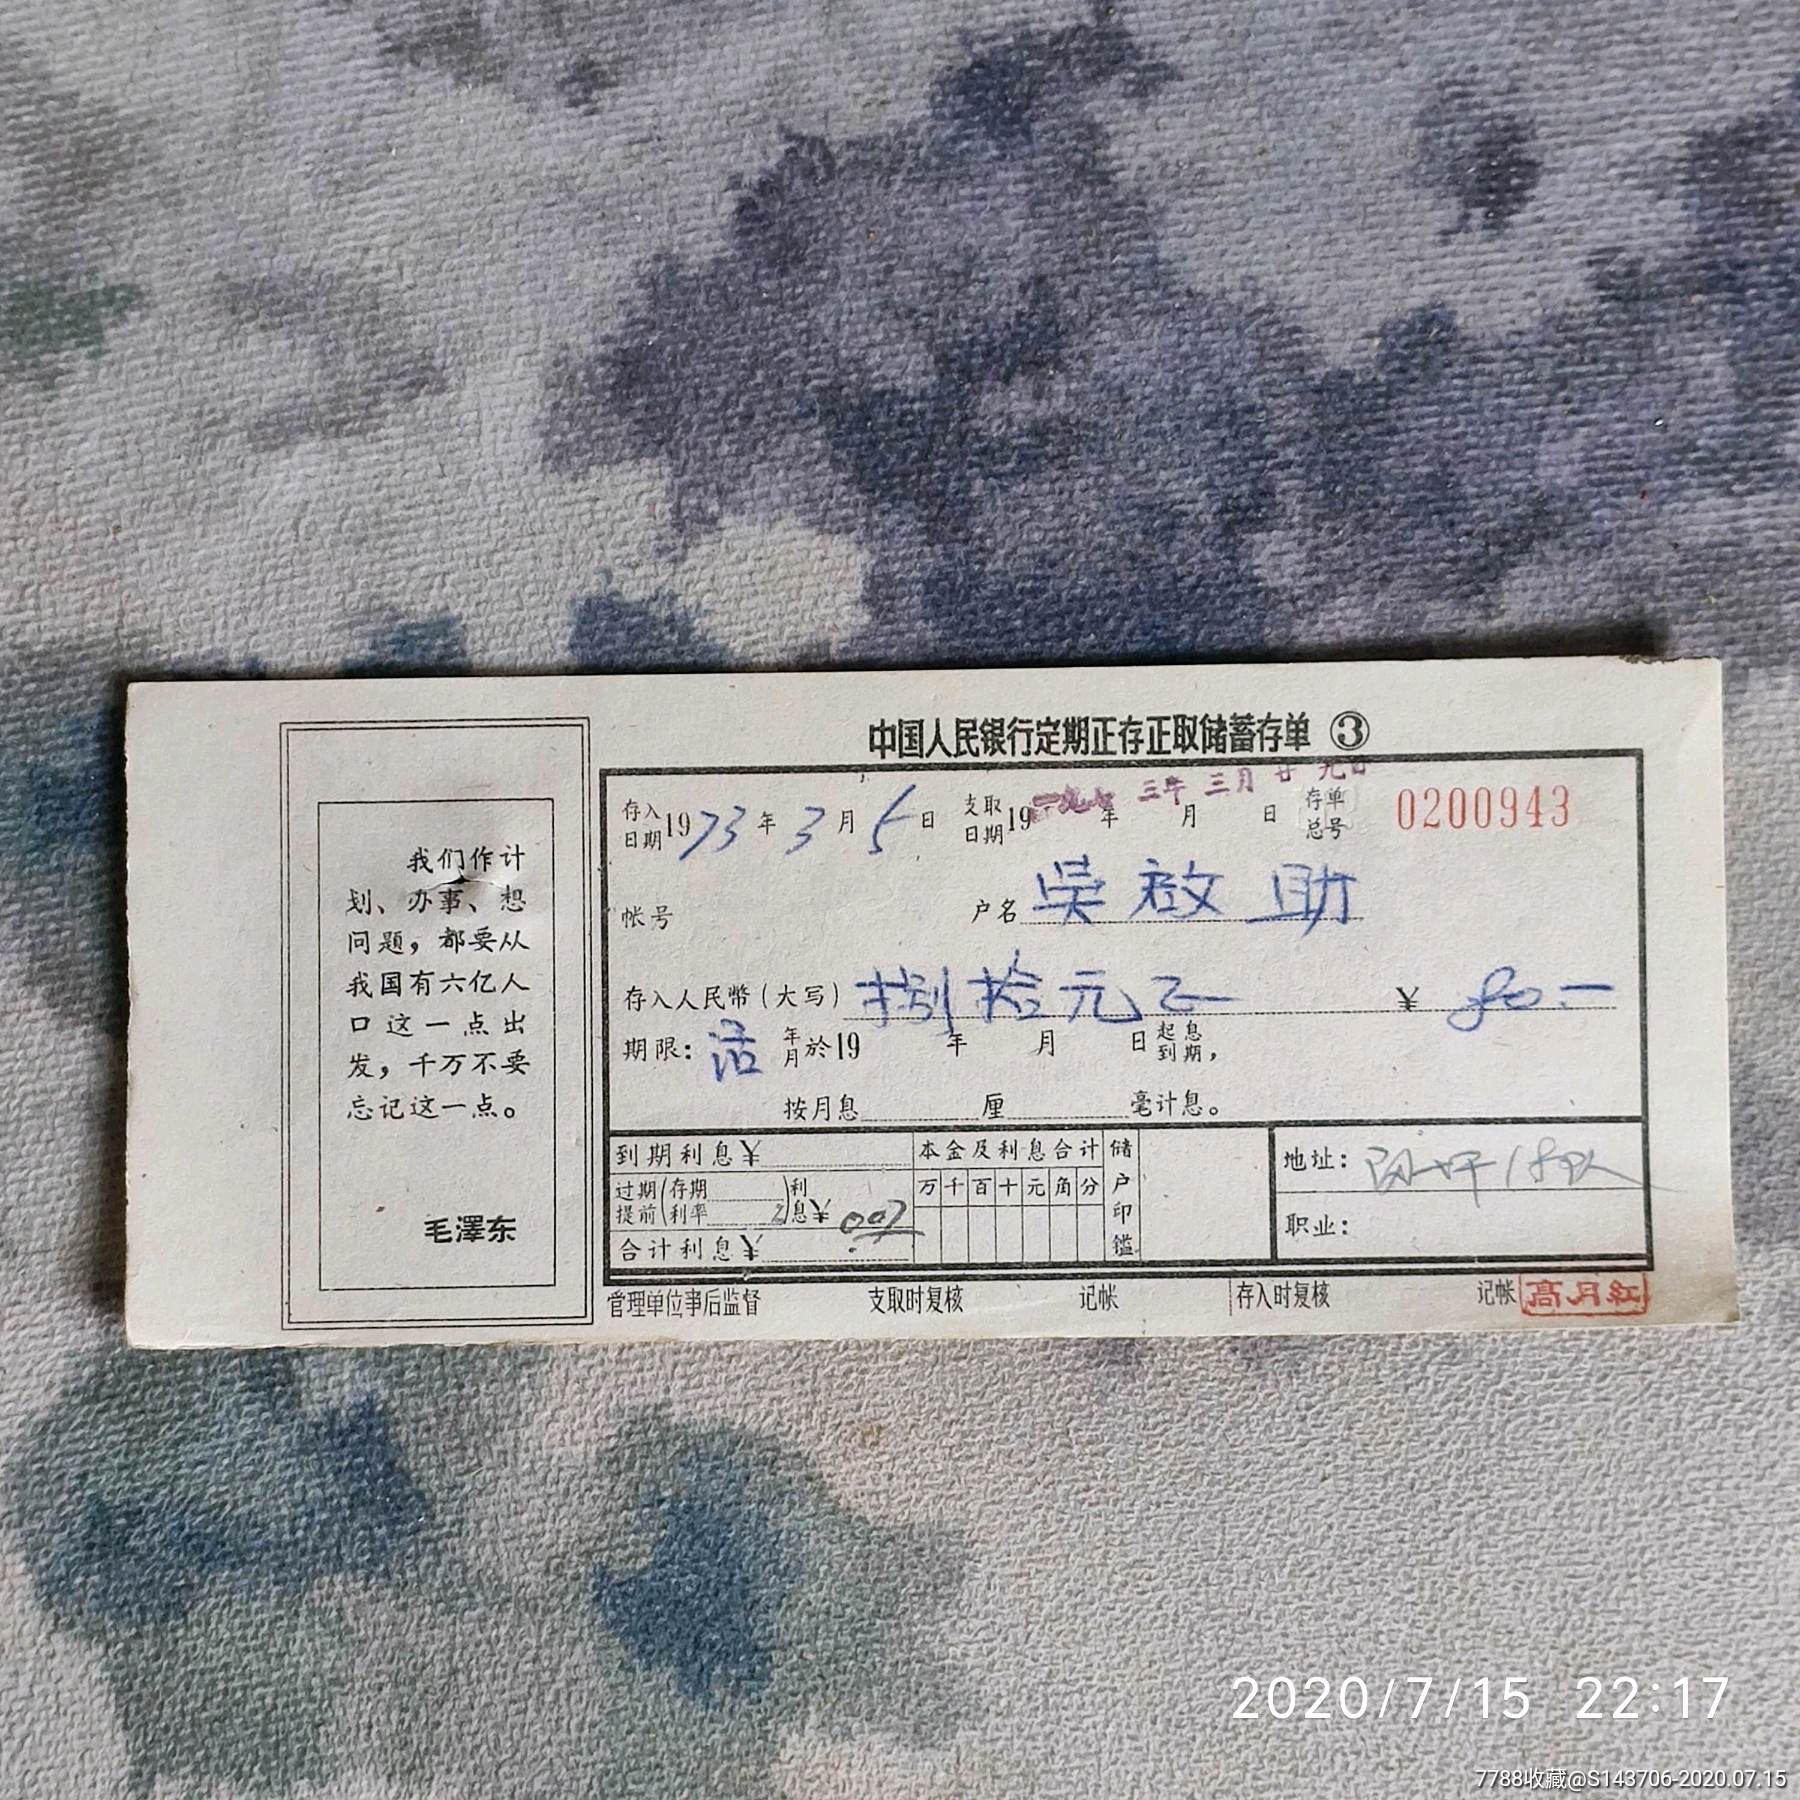 中国人民银行定期正存正取储蓄存单 ③
我们作计
划、办事、想
问题，都要从
我国有六亿人
口这一点出
发，千万不要
忘记这一点。
毛澤东
存入日期 1973年3月5日 支取日期 19 年 月 日 存单总号 0200943
一九七三年三月廿九日
帐号 户名 吴啟助
存入人民幣（大写）捌拾元正 ¥ 80.—
期限：活 年月於19 年 月 日起息到期，
按月息 厘 毫计息。
到期利息¥ 本金及利息合计 储户印鑑
过期提前（存期利率）利息¥ 0.07
万千百十元角分
合计利息¥
地址：
职业：
管理单位事后监督 支取时复核 记帐 存入时复核 记帐 高月红
2020/7/15 22:17
7788收藏@S143706-2020.07.15